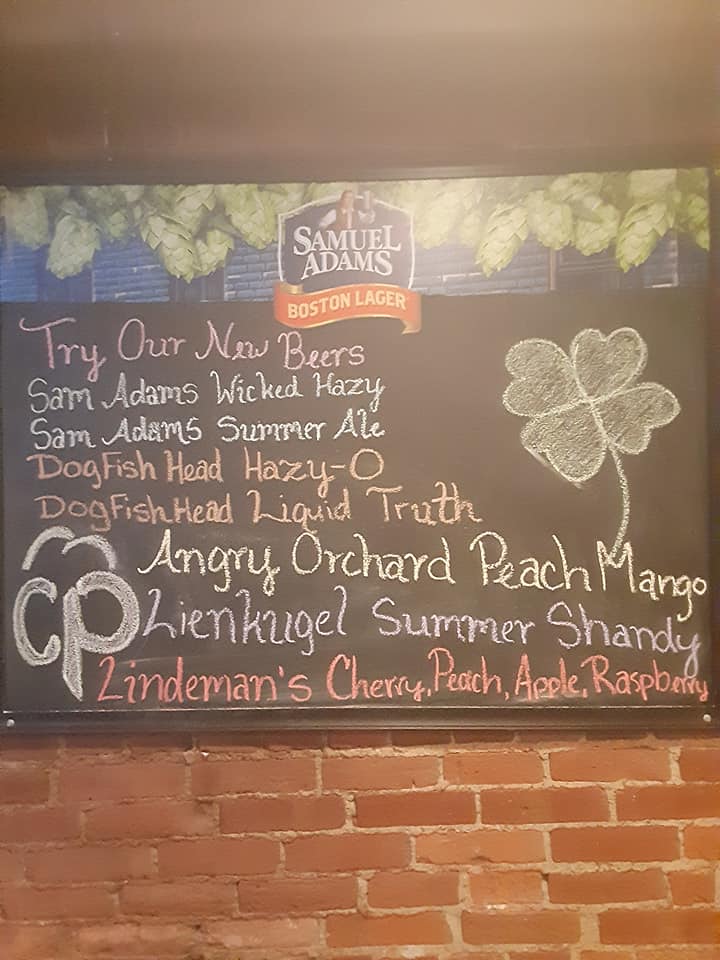 SAMUEL
ADAMS
BOSTON LAGER
Try Our New Beers
Sam Adams Wicked Hazy
Sam Adams Summer Ale
DogFish Head Hazy-O
DogFish Head Liquid Truth
Angry Orchard Peach Mango
cp Lienkugel Summer Shandy
Lindeman's Cherry, Peach, Apple, Raspberry